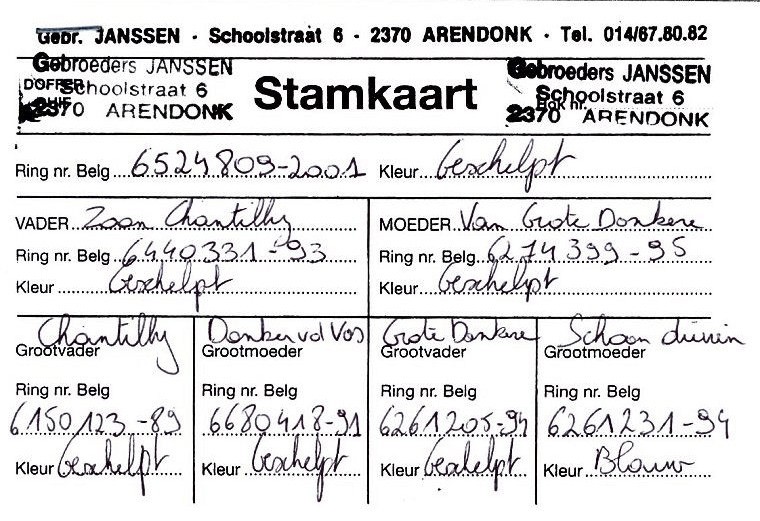 Gebr. JANSSEN - Schoolstraat 6 - 2370 ARENDONK - Tel. 014/67.80.82
Gebroeders JANSSEN
DOFFER Schoolstraat 6
2370 ARENDONK
Stamkaart
Gebroeders JANSSEN
Schoolstraat 6
2370 ARENDONK
Ring nr. Belg 6524809-2001 Kleur Geschelpt
VADER Zoon Chantilly
Ring nr. Belg 6440331-93
Kleur Geschelpt
MOEDER Van Grote Donkere
Ring nr. Belg 6274399-95
Kleur Geschelpt
Chantilly
Grootvader
Ring nr. Belg
6150123-89
Kleur Geschelpt
Donker vol Vos
Grootmoeder
Ring nr. Belg
6680418-91
Kleur Geschelpt
Grote Donkere
Grootvader
Ring nr. Belg
6261205-94
Kleur Geschelpt
Schoon duivin
Grootmoeder
Ring nr. Belg
6261231-94
Kleur Blauw